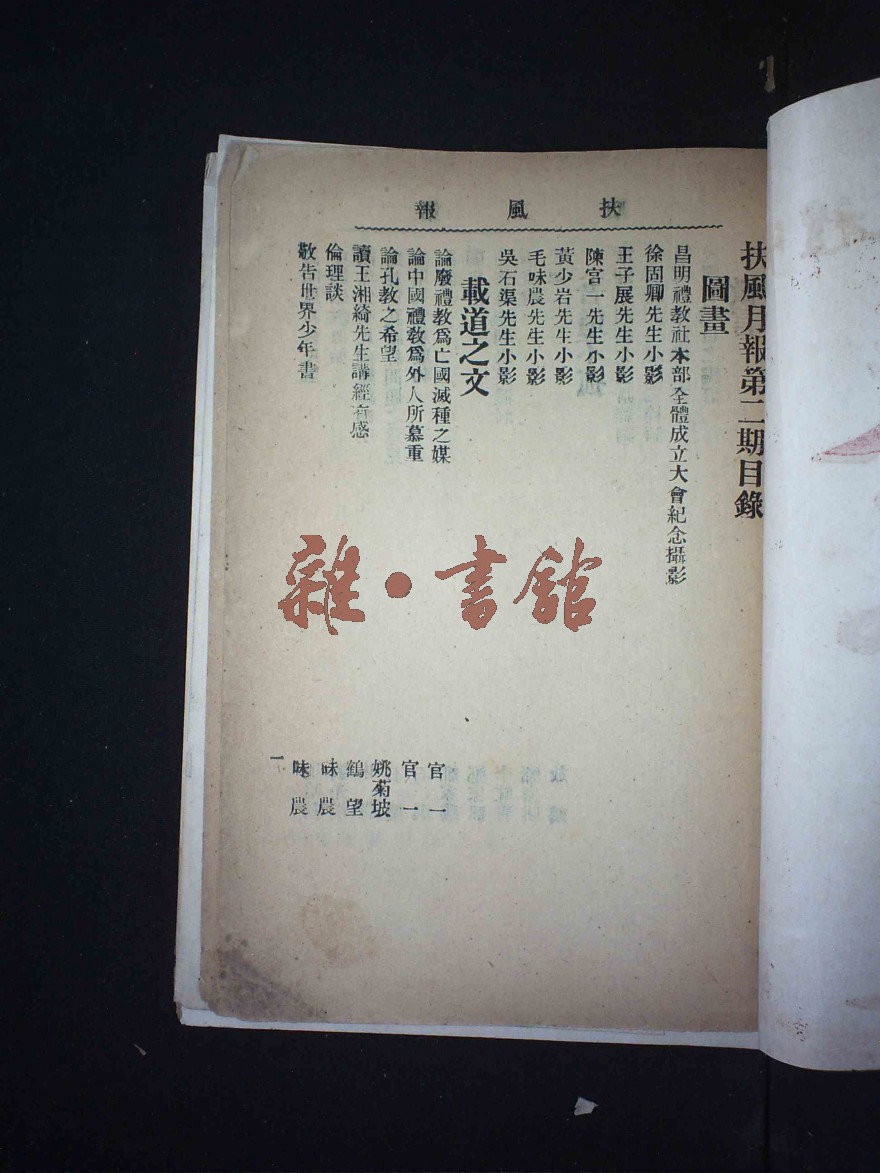 扶風報
扶風月報第二期目錄
圖畫
昌明禮教社本部全體成立大會紀念攝影
徐固卿先生小影
王子展先生小影
陳官一先生小影
黃少岩先生小影
毛味農先生小影
吳石渠先生小影
載道之文
論廢禮教爲亡國滅種之媒 官一
論中國禮教爲外人所慕重 官一
論孔教之希望 姚菊坡
讀王湘綺先生講經有感 鶴望
倫理談 味農
敬告世界少年書 味農
一
雜·書館